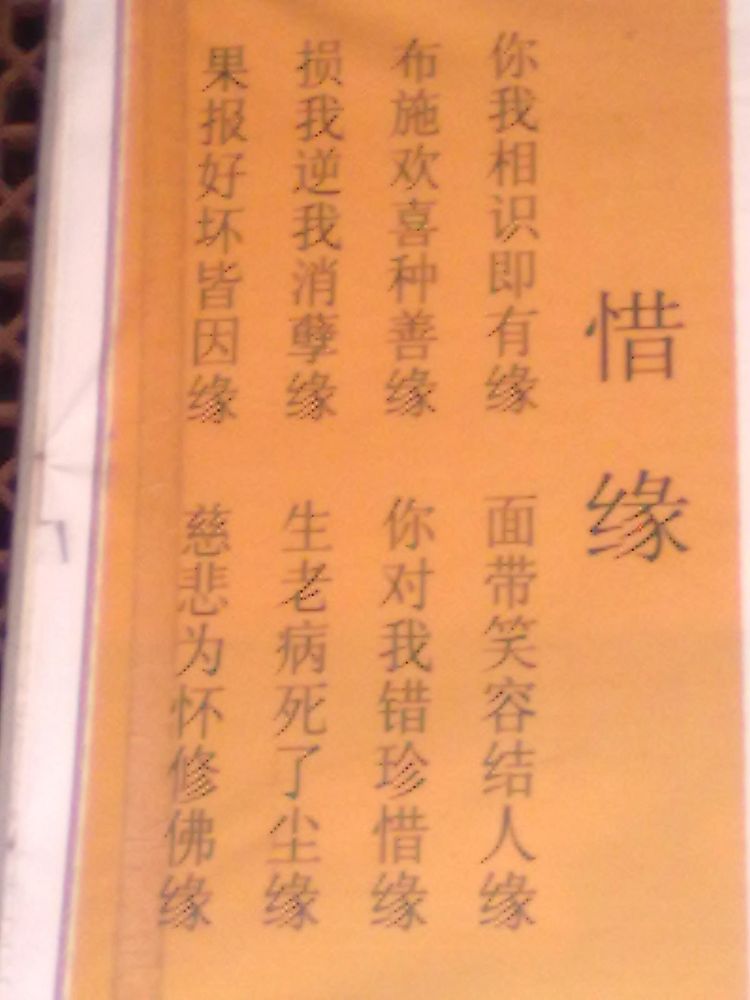 惜缘
你我相识即有缘 面带笑容结人缘
布施欢喜种善缘 你对我错珍惜缘
损我逆我消孽缘 生老病死了尘缘
果报好坏皆因缘 慈悲为怀修佛缘